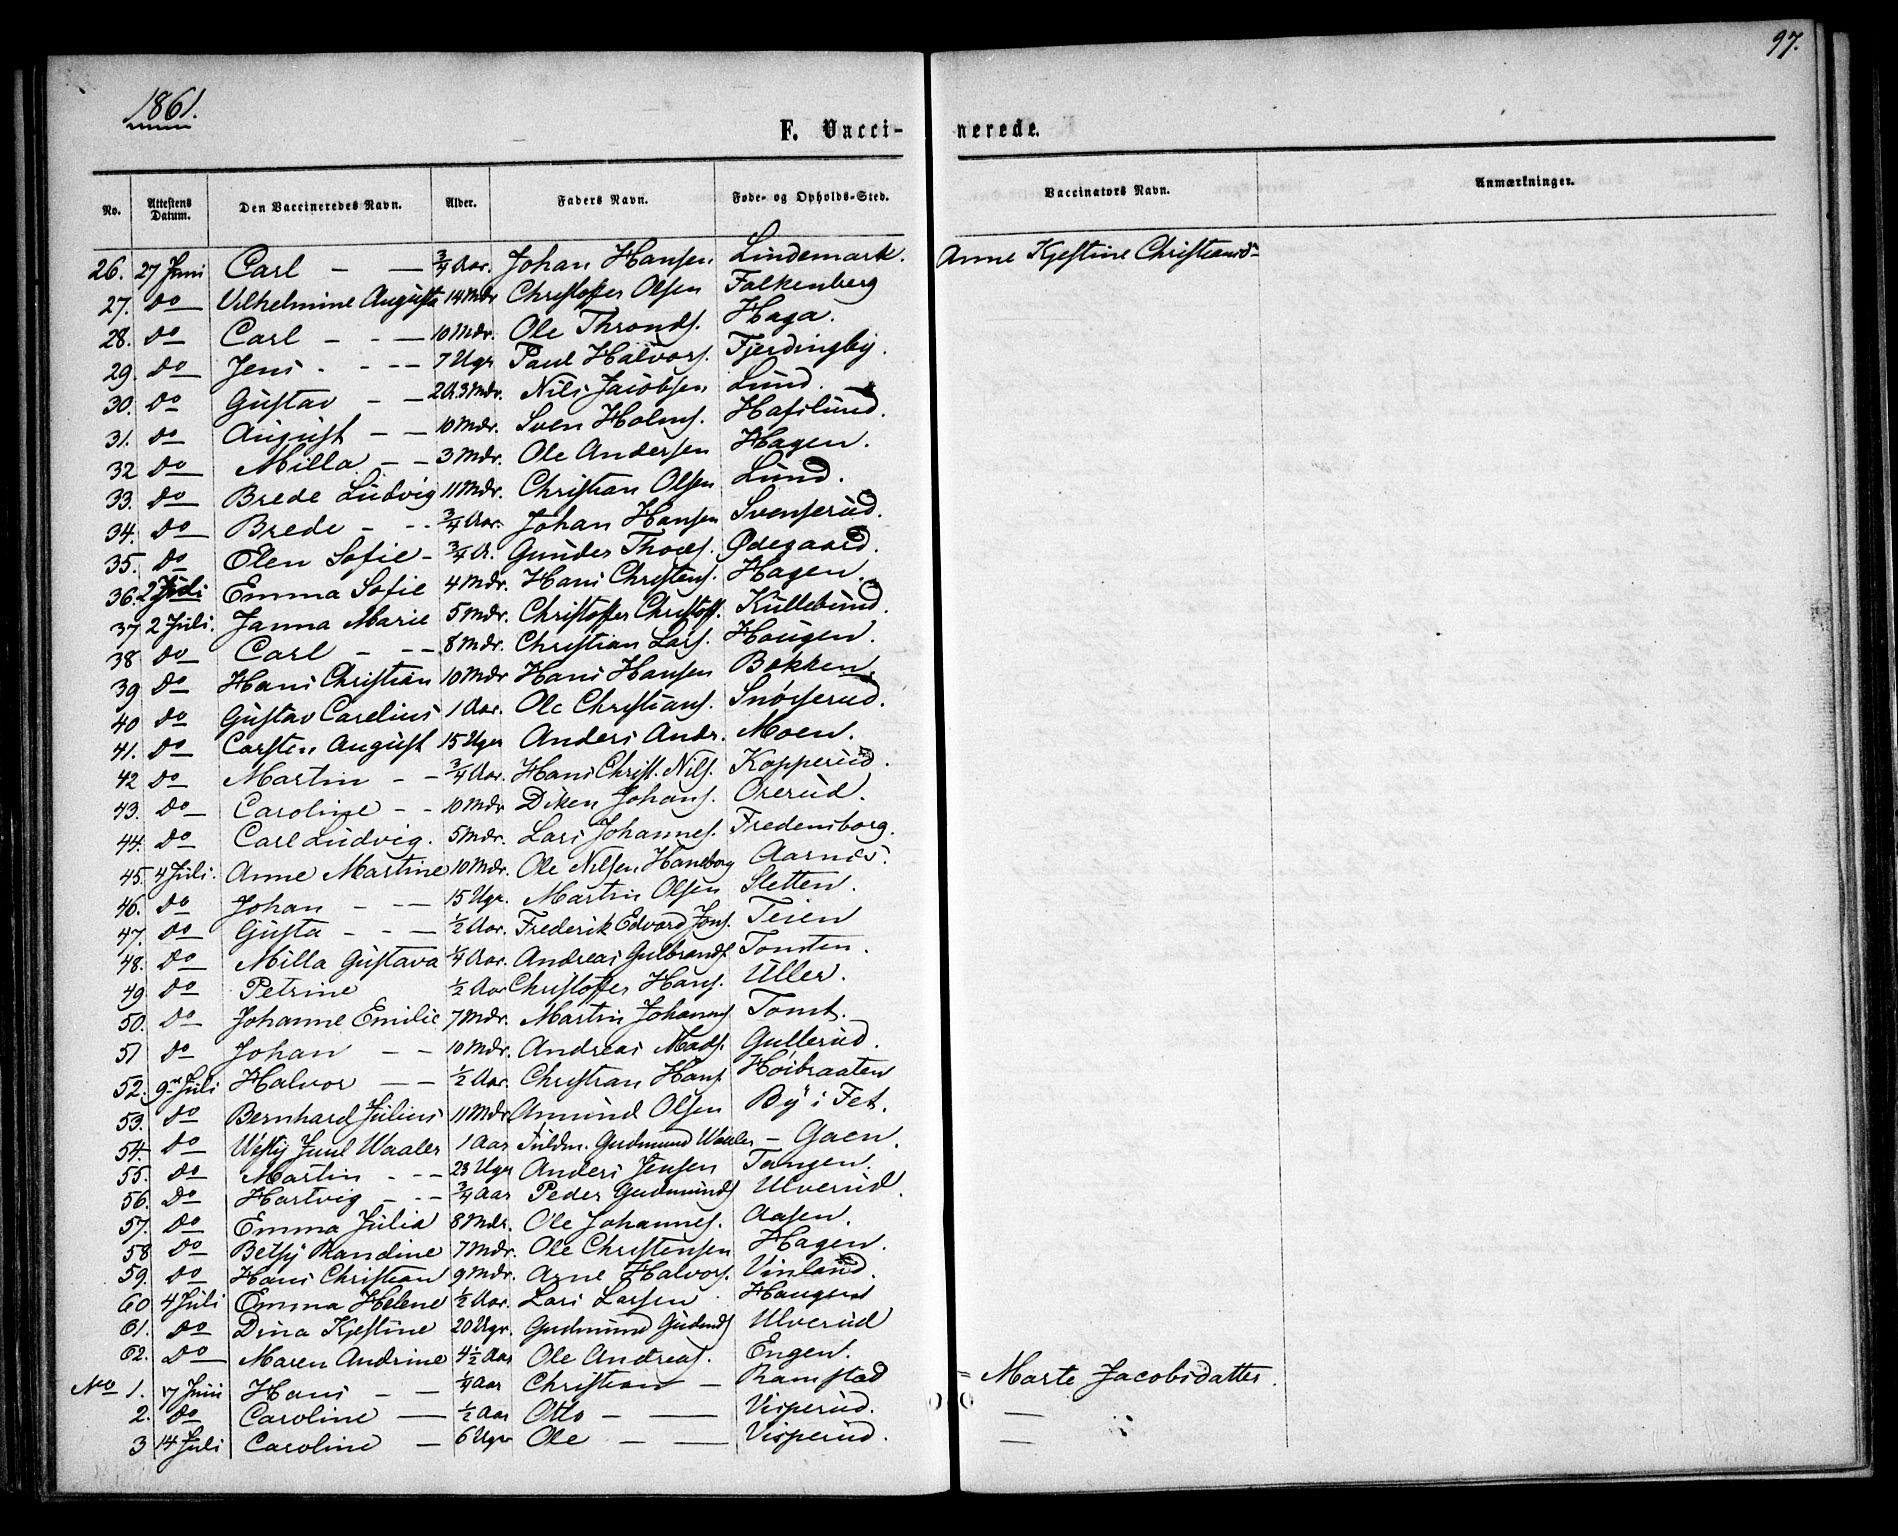 97.
1861.
F. Vaccinerede.
No. Attestens Datum. Den Vaccineredes Navn. Alder. Faders Navn. Føde- og Opholds-Sted. Vaccinators Navn. Anmærkninger.
26. 27 Juni Carl – — 3/4 Aar. Johan Hansen Lindemark. Anne Kjestine Christiansd–
27. Do Vilhelmine Augusta 14 Mdr Christoffer Olsen Falkenberg
28. Do Carl – - — 10 Mdr. Ole Thronds. Haga.
29. Do Jens - - – – 7 Ugr Paul Halvors. Fjerdingby.
30. Do Gustav – — 2 A. 3 Mdr. Nils Jacobsen Lund.
31. Do August – – 10 Mdr. Sven Holms. Hafslund.
32 Do Milla – – 3 Mdr. Ole Andersen Hagen.
33. Do Brede Ludvig 11 Mdr. Christian Olsen Lund.
34. Do Brede – - - 3/4 Aar. Johan Hansen Svenserud.
35. Do Olen Sofie – 3/4 A. Gunder Thors. Ødegaard.
36. 2 Juli Emma Sofie 4 Mdr. Hans Christens. Hagen.
37. 2 Juli. Janna Marie 5 Mdr. Christoffer Christoff. Kullebund.
38 Do Carl – - – 8 Mdr. Christian Lars. Haugen.
39 Do Hans Christian 10 Mdr Hans Hansen Bakken.
40 Do Gustav Carelius 1 Aar. Ole Christians. Snørserud.
41. Do Carsten August 15 Uger Anders Andr. Moen.
42 Do Martin – – 3/4 Aar. Hans Christ. Nils. Kopperud.
43. Do Caroline – – 10 Mdr Diken Johans. Ørerud.
44. Do Carl Ludvig. 5 Mdr. Lars Johannes. Fredensborg.
45. 4 Juli. Anne Martine 10 Mdr. Ole Nilsen Haneborg Aarnes.
46. Do Johan – – — 15 Ugr. Martin Olsen Sletten.
47. Do Gusta – - — 1/2 Aar. Frederik Edvard Jens. Teien
48. Do Milla Gustava 1/4 Aar. Andreas Gulbrands. Tomten.
49 Do Petrine 1/2 Aar Christoffer Hans. Uller.
50. Do Johanne Emilie 7 Mdr. Martin Johanns Tomt.
51 Do Johan – – 10 Mdr. Andreas Mads. Gullerud.
52. 9de Juli Halvor – — 1/2 Aar. Christian Hans. Høibraaten
53. Do Bernhard Julius 11 Mdr. Amund Olsen By i Fet.
54. Do Juul Waaler 1 Aar Fuldm. Gudmund Waaler – Gaen.
55. Do Martin – - – 23 Uger Anders Jensen Tangen.
56. Do Hartvig – - – 3/4 Aar Peder Gudmunds Ulverud.
57. Do Emma Julia 8 Mdr. Ole Johannes. Aasen.
58 Do Betsy Randine 7 Mdr. Ole Christensen Hagen.
59. Do Hans Christian 9 Mdr. Arne Halvors. Vinland.
60 4 Juli Emma Helene 1/2 Aar. Lars Larsen Haugen
61. Do Dina Kjestine 20 Ugr. Gudmund Gudmds Ulverud
62. Do Maren Andrine 4 1/2 Aar Ole Andreas. Engen.
No 1. 17 Juni Hans – – 1/4 Aar Christian – Ramstad = Marte Jacobsdatter.
2. Do Caroline — 1/2 Aar Otto – — Visperud. —
3 14 Juli Caroline – 6 Ugr Ole – — Visperud. —